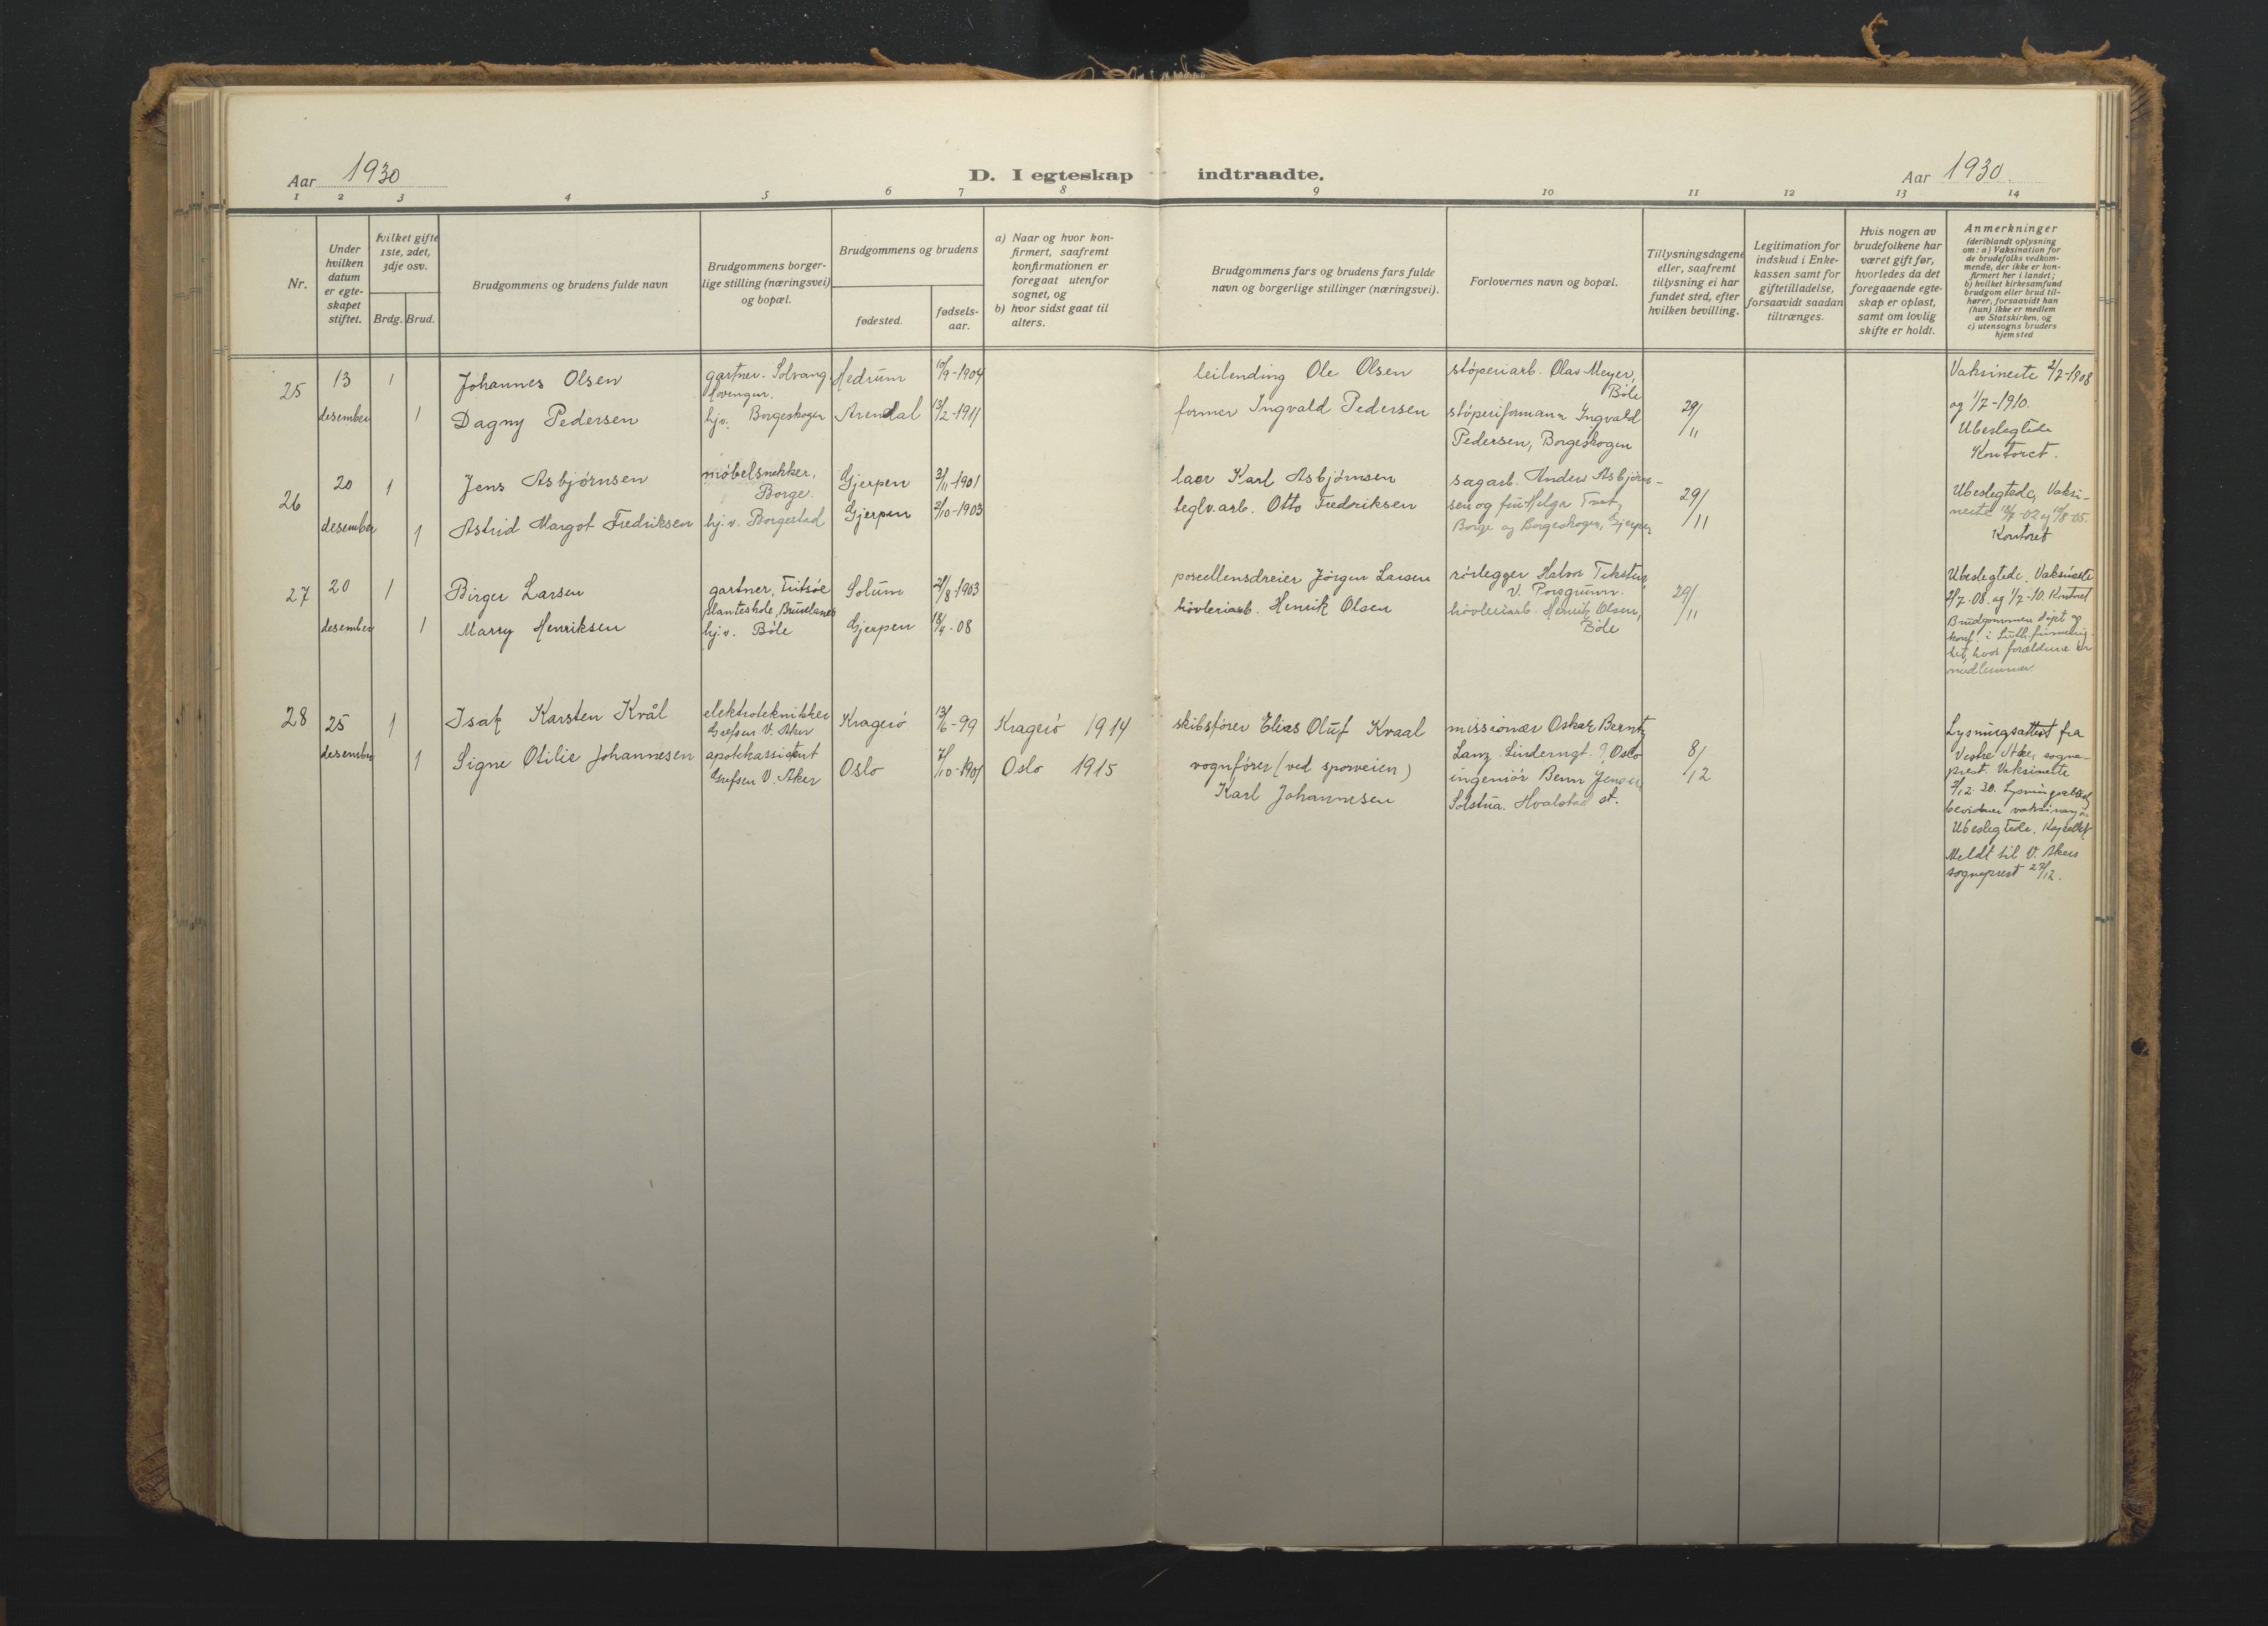 Aar 1930
D. I egteskap indtraadte.
Aar 1930.
1 2 3 4 5 6 7 8 9 10 11 12 13 14
Nr.
Under
hvilken
datum
er egte-
skapet
stiftet.
Hvilket gifte
1ste, 2det,
3dje osv.
Brdg. Brud.
Brudgommens og brudens fulde navn
Brudgommens borger-
lige stilling (næringsvei)
og bopæl.
Brudgommens og brudens
fødested.
fødsels-
aar.
a) Naar og hvor kon-
firmert, saafremt
konfirmationen er
foregaat utenfor
sognet, og
b) hvor sidst gaat til
alters.
Brudgommens fars og brudens fars fulde
navn og borgerlige stillinger (næringsvei).
Forlovernes navn og bopæl.
Tillysningsdagene
eller, saafremt
tillysning ei har
fundet sted, efter
hvilken bevilling.
Legitimation for
indskud i Enke-
kassen samt for
giftetilladelse,
forsaavidt saadan
tiltrænges.
Hvis nogen av
brudefolkene har
været gift før,
hvorledes da det
foregaaende egte-
skap er opløst,
samt om lovlig
skifte er holdt.
Anmerkninger
(deriblandt oplysning
om: a) Vaksination for
de brudefolks vedkom-
mende, der ikke er kon-
firmert her i landet;
b) hvilket kirkesamfund
brudgom eller brud til-
hører, forsaavidt han
(hun) ikke er medlem
av Statskirken, og
c) utensogns bruders
hjemsted
25
13
desember
1
1
Johannes Olsen
Dagny Pedersen
gartner. Solvang
hjv. Borgeskogen
Hedrum
Arendal
10/9-1904
13/2-1911
leilending Ole Olsen
former Ingvald Pedersen
støperiarb. Olav Meyer,
Bøle
støperiformann Ingvald
Pedersen, Borgeskogen
29/
/11
Vaksinerte 2/7-1908
og 1/7-1910.
Ubeslegtede
Kontoret.
26
20
desember
1
1
Jens Asbjørnsen
Astrid Margot Fredriksen
møbelsnekker,
Borge.
hj.v. Borgestad
Gjerpen
Gjerpen
3/11-1901
2/10-1903
Karl Asbjørnsen
teglv.arb. Otto Fredriksen
sagarb. Anders Asbjørn-
sen og fru Helga
Borge og Borgeskogen, Gjerpen
29/
/11
Ubeslegtede, Vaksi-
nerte
Kontoret
27
20
desember
1
1
Birger Larsen
Marry Henriksen
gartner, Fritsøe
planteskole, Brunlanes
hj.v. Bøle
Solum
Gjerpen
21/8-1903
18/4-08
porcellensdreier Jørgen Larsen
høvleriarb. Henrik Olsen
rørlegger Halvor
V. Porsgrunn.
høvleriarb. Henrik Olsen,
Bøle
29/
/11
Ubeslegtede. Vaksinerte
2/7-08. og 1/7-10. Kontoret
Brudgommen døpt og
konf. i Luth. frimenig-
het, hvor forældrene er
medlemmer.
28
25
desember
1
1
Isak Karsten Krål
Signe Otilie Johannesen
elektrotekniker
Grefsen V. Aker
apotekassistent
Grefsen V. Aker
Kragerø
Oslo
13/6-99
7/10-1901
Kragerø 1914
Oslo 1915
skibsfører Elias Oluf Kraal
vognfører (ved sporveien)
Karl Johannesen
missionær Oskar Berntz
Lanz. Linderngt. 9, Oslo
ingeniør Bernr
Solstua. Hvalstad st.
8/
/12
Lysningsattest fra
Vestre Aker sogne-
prest. Vaksinerte
Lysningsattest
bevidner vaksinasjon
Ubeslegtede. Kapellet.
Meldt til V. Akers
sogneprest 27/12.